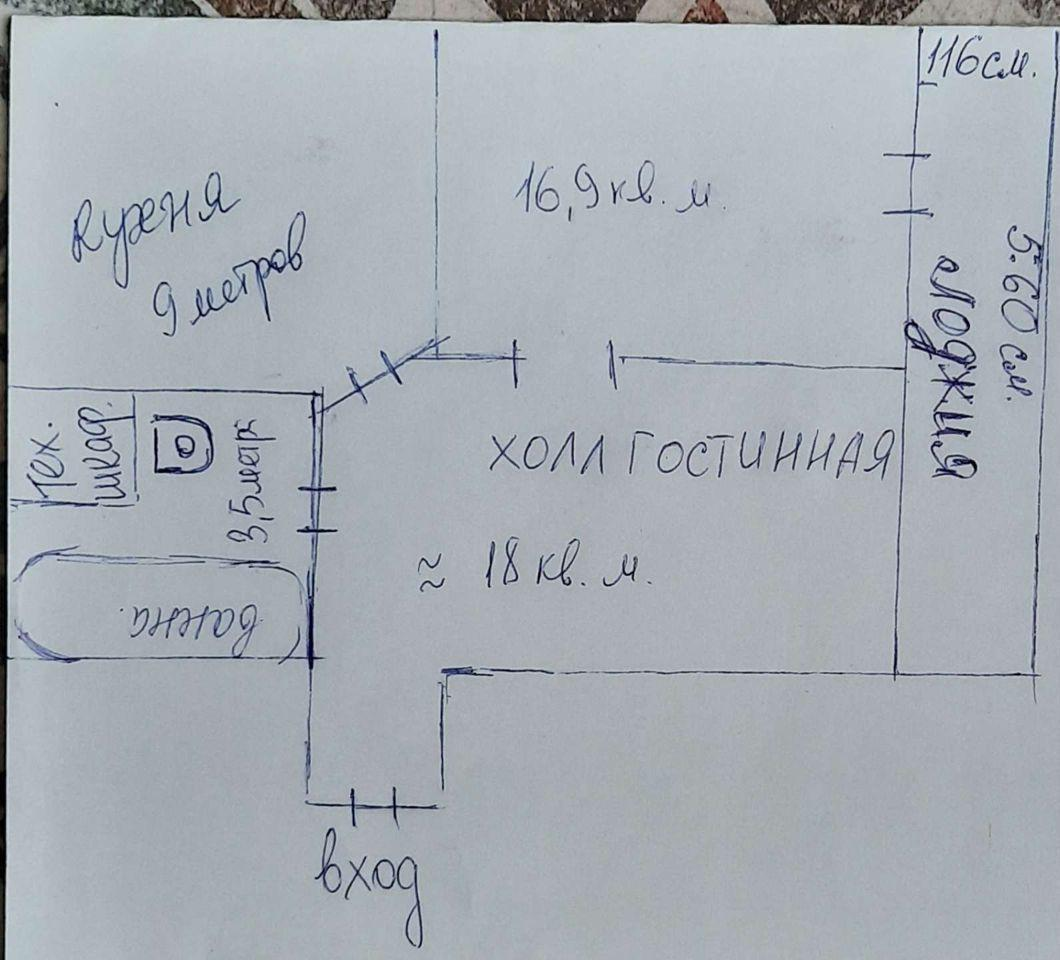 116см.
16,9 кв. м.
Кухня
9 метров
5.60 см.
лоджия
Тех.
шкаф.
3,5 метра
ХОЛЛ ГОСТИННАЯ
≈ 18 кв. м.
ванна.
вход